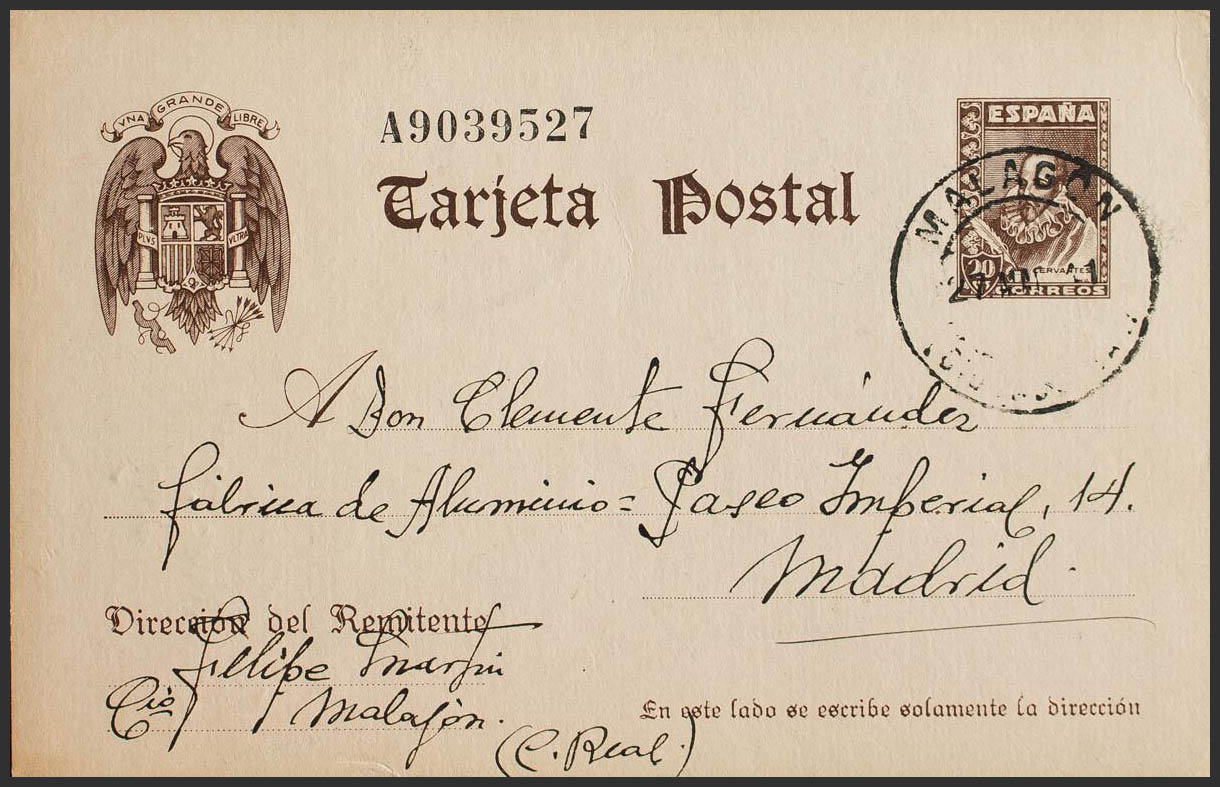 VNA GRANDE LIBRE
A9039527
ESPAÑA
Tarjeta Postal
MALAGON
PLVS VLTRA
20 CERVANTES
27
CORREOS
A Don Clemente Fernández
fábrica de Aluminio = Paseo Imperial, 14.
Madrid.
Dirección del Remitente
Felipe Martin
Malagón.
(C. Real.)
En este lado se escribe solamente la dirección